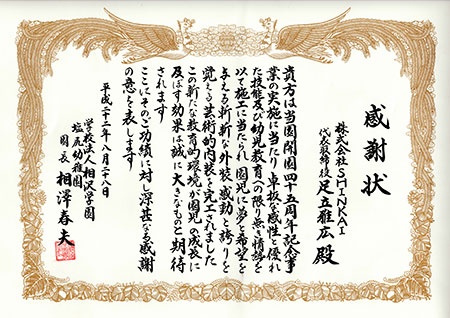 感謝状
株式会社SHINKAI
代表取締役 足立雅広 殿
貴方は当園開園四十五周年記念事
業の実施に当たり卓抜な感性と優れ
た技能及び幼児教育への限り無き情熱を
以て施工に当たられ園児に夢と希望を
与える斬新な外装、感動と誇りを
覚える芸術的内装を完工されました
この新たな教育的環境が園児の成長に
及ぼす効果は誠に大きなものと期待
されます
ここにその功績に対し深甚なる感謝
の意を表します
平成二十二年八月二十八日
学校法人相沢学園
塩尻幼稚園
園長 相澤春夫